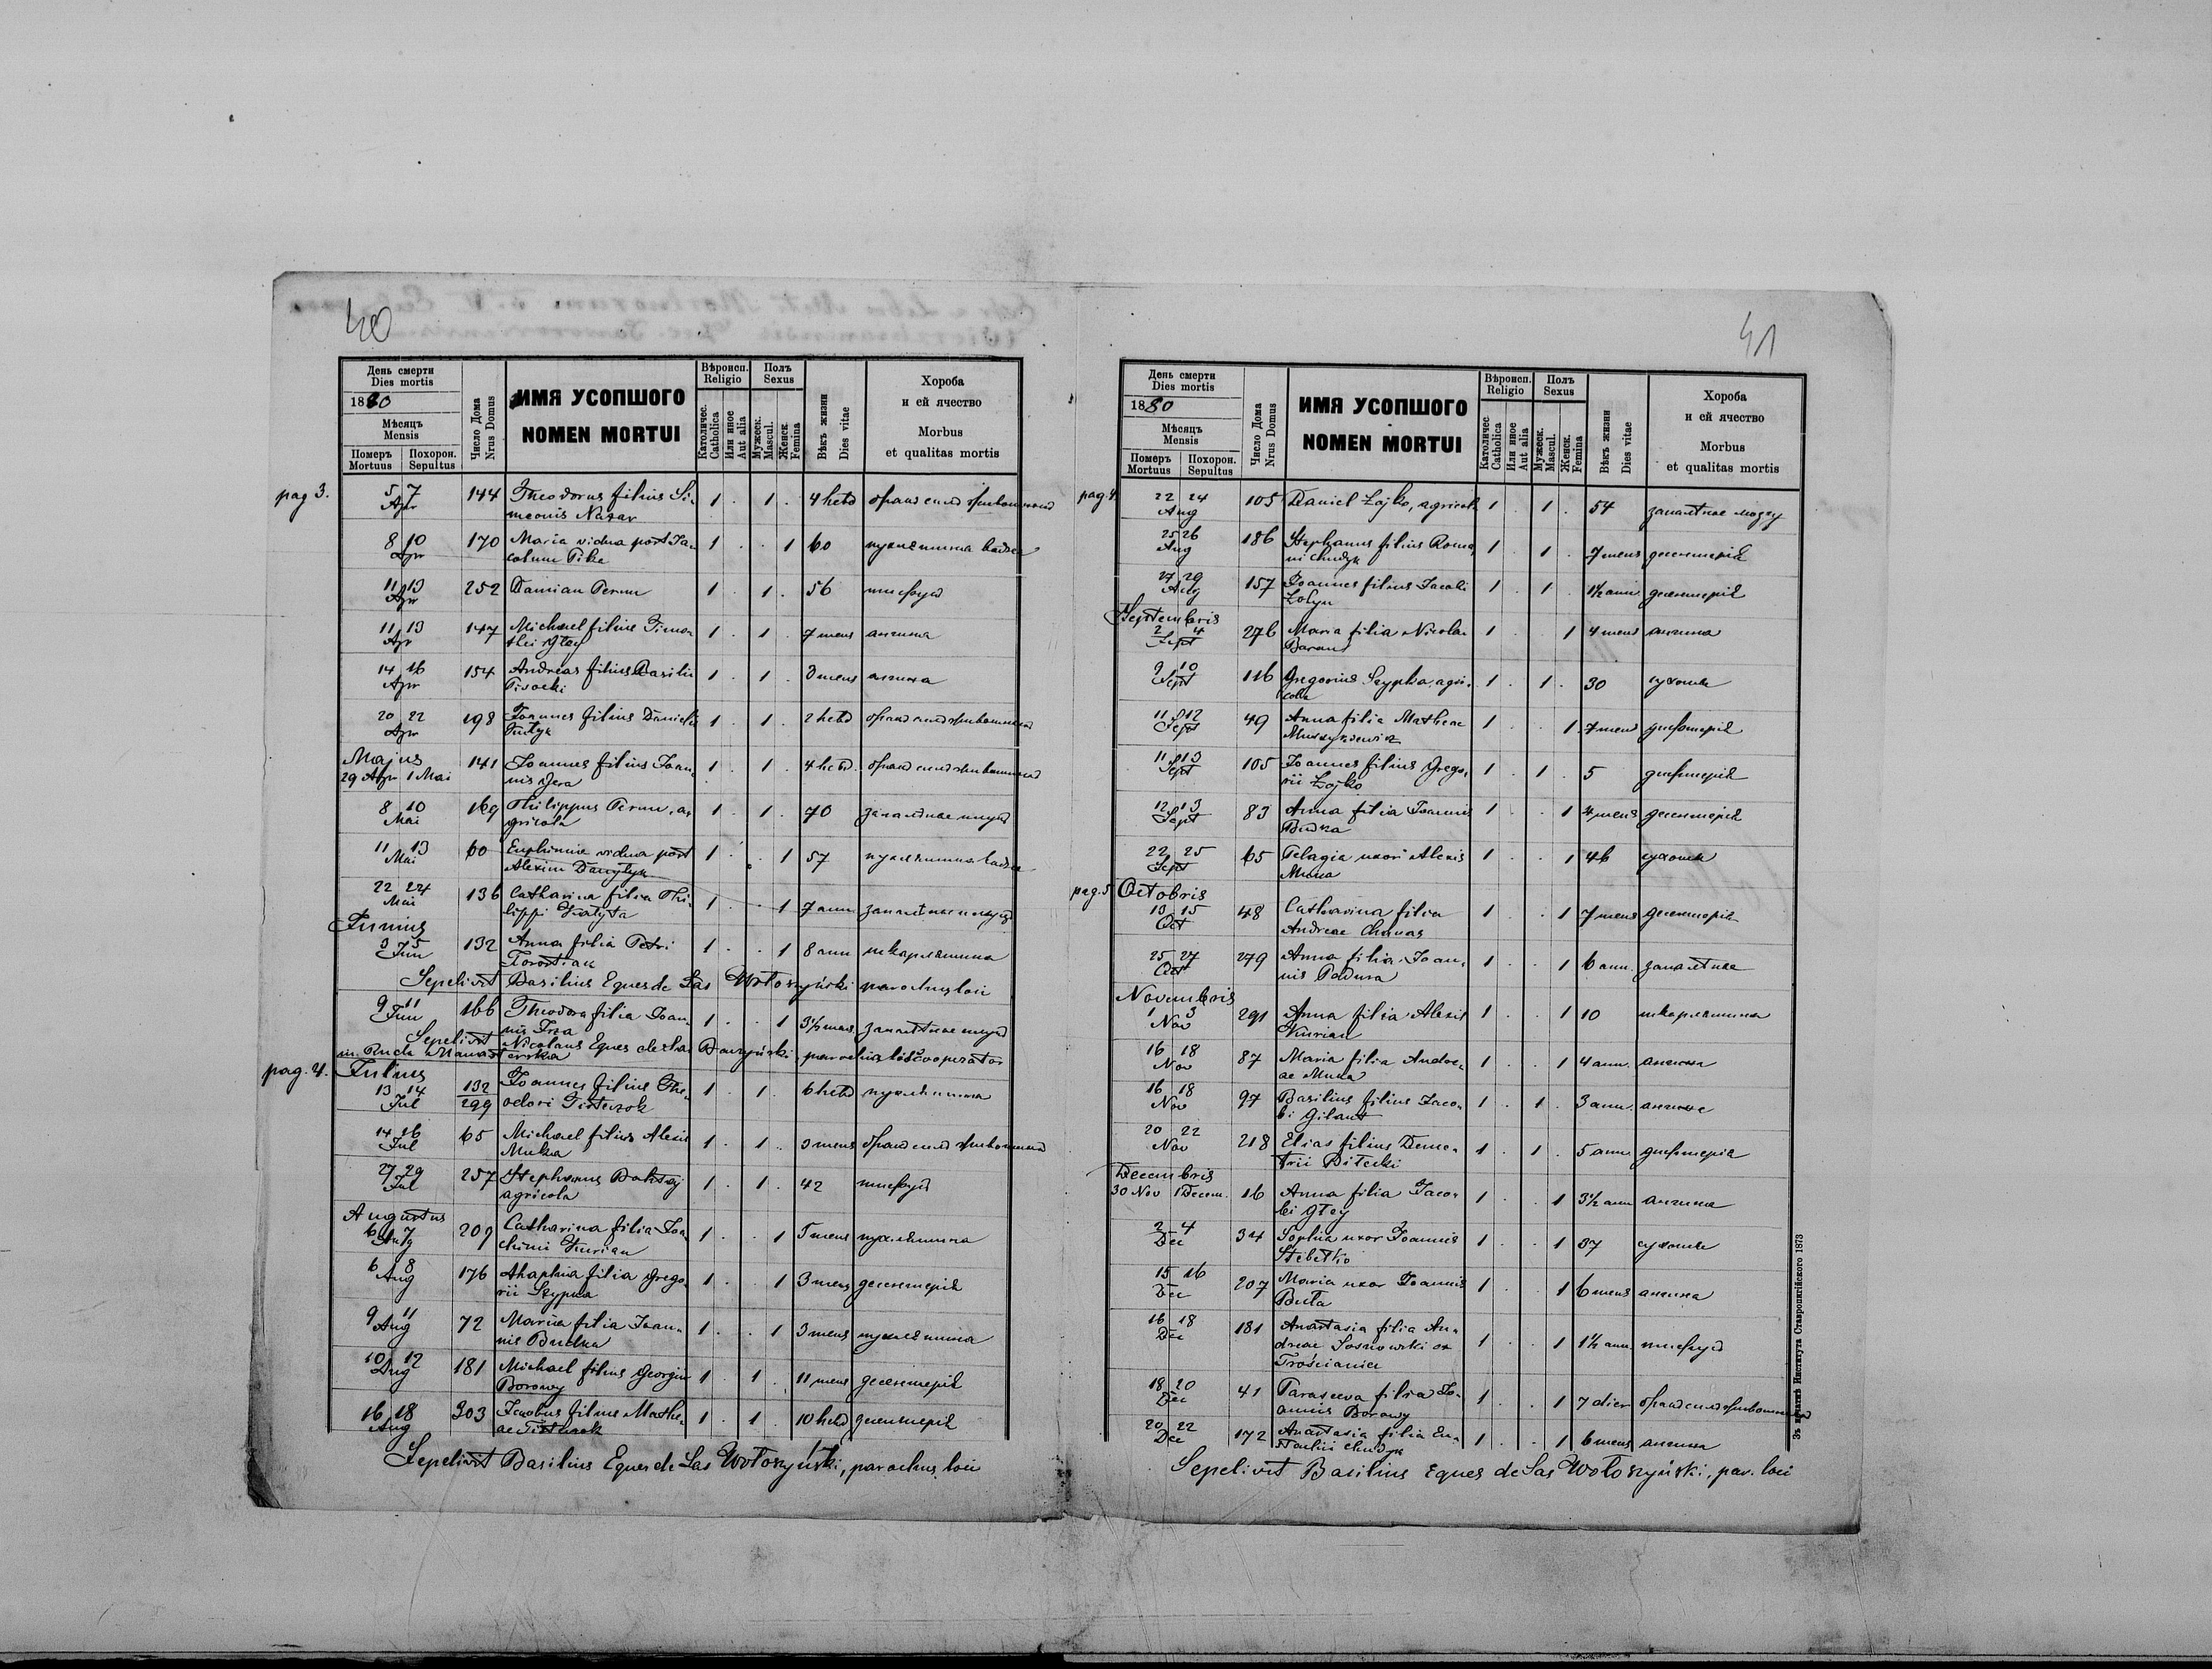 40
День смерти
Dies mortis
1880
Мѣсяцъ
Mensis
Померъ Похорон.
Mortuus Sepultus
Число Дома
Nrus Domus
ИМЯ УСОПШОГО
NOMEN MORTUI
Вѣроисп.
Religio
Католичес.
Catholica
Или иное
Aut alia
Полъ
Sexus
Мужеск.
Mascul.
Женск.
Femina
Вѣкъ жизни
Dies vitae
Хороба
и ей ячество
Morbus
et qualitas mortis
pag 3.
5 7 Apr 144 Theodorus filius Si-
meonis Nazar 1 . 1 . 4 hebd бракъ силъ животныхъ
8 10 Apr 170 Maria vidua post Ja-
cobum 1 . . 1 60 пухлятина
11 13 Apr 252 Damian 1 . 1 . 56 тифусъ
11 13 Apr 147 Michael filius Timo-
thei Głey 1 . 1 . 7 mens ангина
14 16 Apr 154 Andreas filius Basilii
Pisocki 1 . 1 . 3 mens ангина
20 22 Apr 198 Joannes filius Danielis
1 . 1 . 2 hebd бракъ силъ животныхъ
Majus
29 Apr 1 Mai 141 Joannes filius Joan-
nis Gera 1 . 1 . 4 hebd. бракъ силъ животныхъ
8 10 Mai 169 Philippus a-
gricola 1 . 1 . 70 запаленіе
11 13 Mai 60 Euphimia vidua post
Alexium Danyłyk 1 . . 1 57 пухлятина
22 24 Mai 136 Catharina filia Phi-
lippi 1 . . 1 7 ann запаленіе
Junius
3 5 Jun 132 Anna filia Petri
1 . . 1 8 ann шкарлятина
Sepelivit Basilius Eques de Sas Wołoszyński parochus loci
9 11 Jun 166 Theodora filia Joan-
nis 1 . . 1 3½ mens запаленіе
Sepelivit Nicolaus Eques de
parochus
pag. 4. Julius
13 14 Jul 132
299 Joannes filius The-
odori 1 . 1 . 6 hebd пухлятина
14 16 Jul 65 Michael filius Alexii
Muka 1 . 1 . 3 mens бракъ силъ животныхъ
27 29 Jul 257 Stephanus
agricola 1 . 1 . 42 тифусъ
Augustus
6 7 Aug 209 Catharina filia Joa-
chimi Kurian 1 . . 1 5 mens пухлятина
6 8 Aug 176 Ahaphia filia Grego-
rii Szypka 1 . . 1 3 mens десентерія
9 11 Aug 72 Maria filia Joan-
nis Budka 1 . . 1 3 mens пухлятина
10 12 Aug 181 Michael filius Georgii
Borowy 1 . 1 . 11 mens десентерія
16 18 Aug 303 Jacobus filius Mathe-
ae 1 . 1 . 10 hebd десентерія
Sepelivit Basilius Eques de Sas Wołoszyński, parochus loci
41
День смерти
Dies mortis
1880
Мѣсяцъ
Mensis
Померъ Похорон.
Mortuus Sepultus
Число Дома
Nrus Domus
ИМЯ УСОПШОГО
NOMEN MORTUI
Вѣроисп.
Religio
Католичес
Catholica
Или иное
Aut alia
Полъ
Sexus
Мужеск.
Mascul.
Женск.
Femina
Вѣкъ жизни
Dies vitae
Хороба
и ей ячество
Morbus
et qualitas mortis
pag. 4.
22 24 Aug 105 Daniel Łojko, agricola 1 . 1 . 54 запаленіе мозгу
25 26 Aug 186 Stephanus filius Roma-
ni Chudyk 1 . 1 . 7 mens десентерія
27 29 Aug 157 Joannes filius Jacobi
1 . 1 . 1½ ann десентерія
Septembris
2 4 Sept 276 Maria filia Nicolai
Baran 1 . . 1 4 mens ангина
9 10 Sept 116 Gregorius Szypka, agri-
cola 1 . 1 . 30 сухоты
11 12 Sept 49 Anna filia Matheae
1 . . 1 7 mens дифтерія
11 13 Sept 105 Joannes filius Grego-
rii Łojko 1 . 1 . 5 дифтерія
12 13 Sept 83 Anna filia Joannis
Budka 1 . . 1 4 mens десентерія
22 25 Sept 65 Pelagia uxor Alexii
Muka 1 . . 1 46 сухоты
pag. 5 Octobris
13 15 Oct 48 Catharina filia
Andreae 1 . . 1 7 mens десентерія
25 27 Oct 279 Anna filia Joan-
nis 1 . . 1 6 ann. запаленіе
Novembris
1 3 Nov 291 Anna filia Alexii
Kurian 1 . . 1 10 шкарлятина
16 18 Nov 87 Maria filia Andre-
ae Muka 1 . . 1 4 ann. ангина
16 18 Nov 97 Basilius filius Jaco-
bi 1 . 1 . 3 ann. ангина
20 22 Nov 218 Elias filius Deme-
trii Bilecki 1 . 1 . 5 ann. дифтерія
Decembris
30 Nov 1 Decem. 16 Anna filia Jaco-
bi Głey 1 . . 1 3½ ann ангина
2 4 Dec 34 Sophia uxor Joannis
Stebełko 1 . . 1 37 сухоты
15 16 Dec 207 Maria uxor Joannis
1 . . 1 6 mens ангина
16 18 Dec 181 Anastasia filia An-
dreae Sosnowski ex
Trościaniec 1 . . 1 1½ ann. тифусъ
18 20 Dec 41 Parasceva filia Jo-
annis Borowy 1 . . 1 7 dier бракъ силъ животныхъ
20 22 Dec 172 Anastasia filia Eu-
stachii Chudyk 1 . . 1 6 mens ангина
Sepelivit Basilius Eques de Sas Wołoszyński, par. loci
Зъ печатнѣ Института Ставропигійского 1873